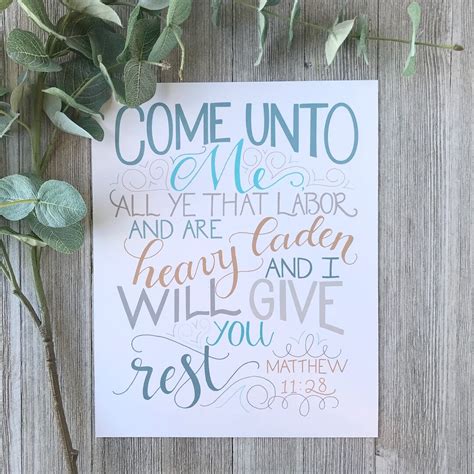 COME UNTO
Me
ALL YE THAT LABOR
AND ARE
heavy laden
AND I
WILL GIVE
YOU
rest
MATTHEW
11:28